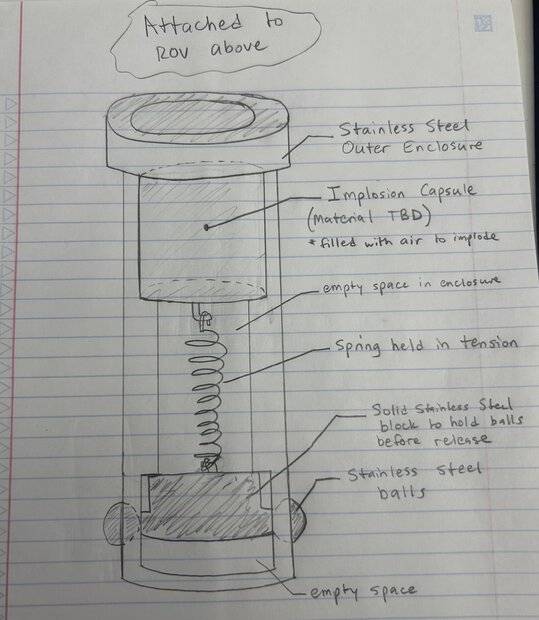 Attached to
ROV above
Stainless Steel
Outer Enclosure
Implosion Capsule
(Material TBD)
* filled with air to implode
empty space in enclosure
Spring held in tension
Solid Stainless Steel
block to hold balls
before release
Stainless steel
balls
empty space